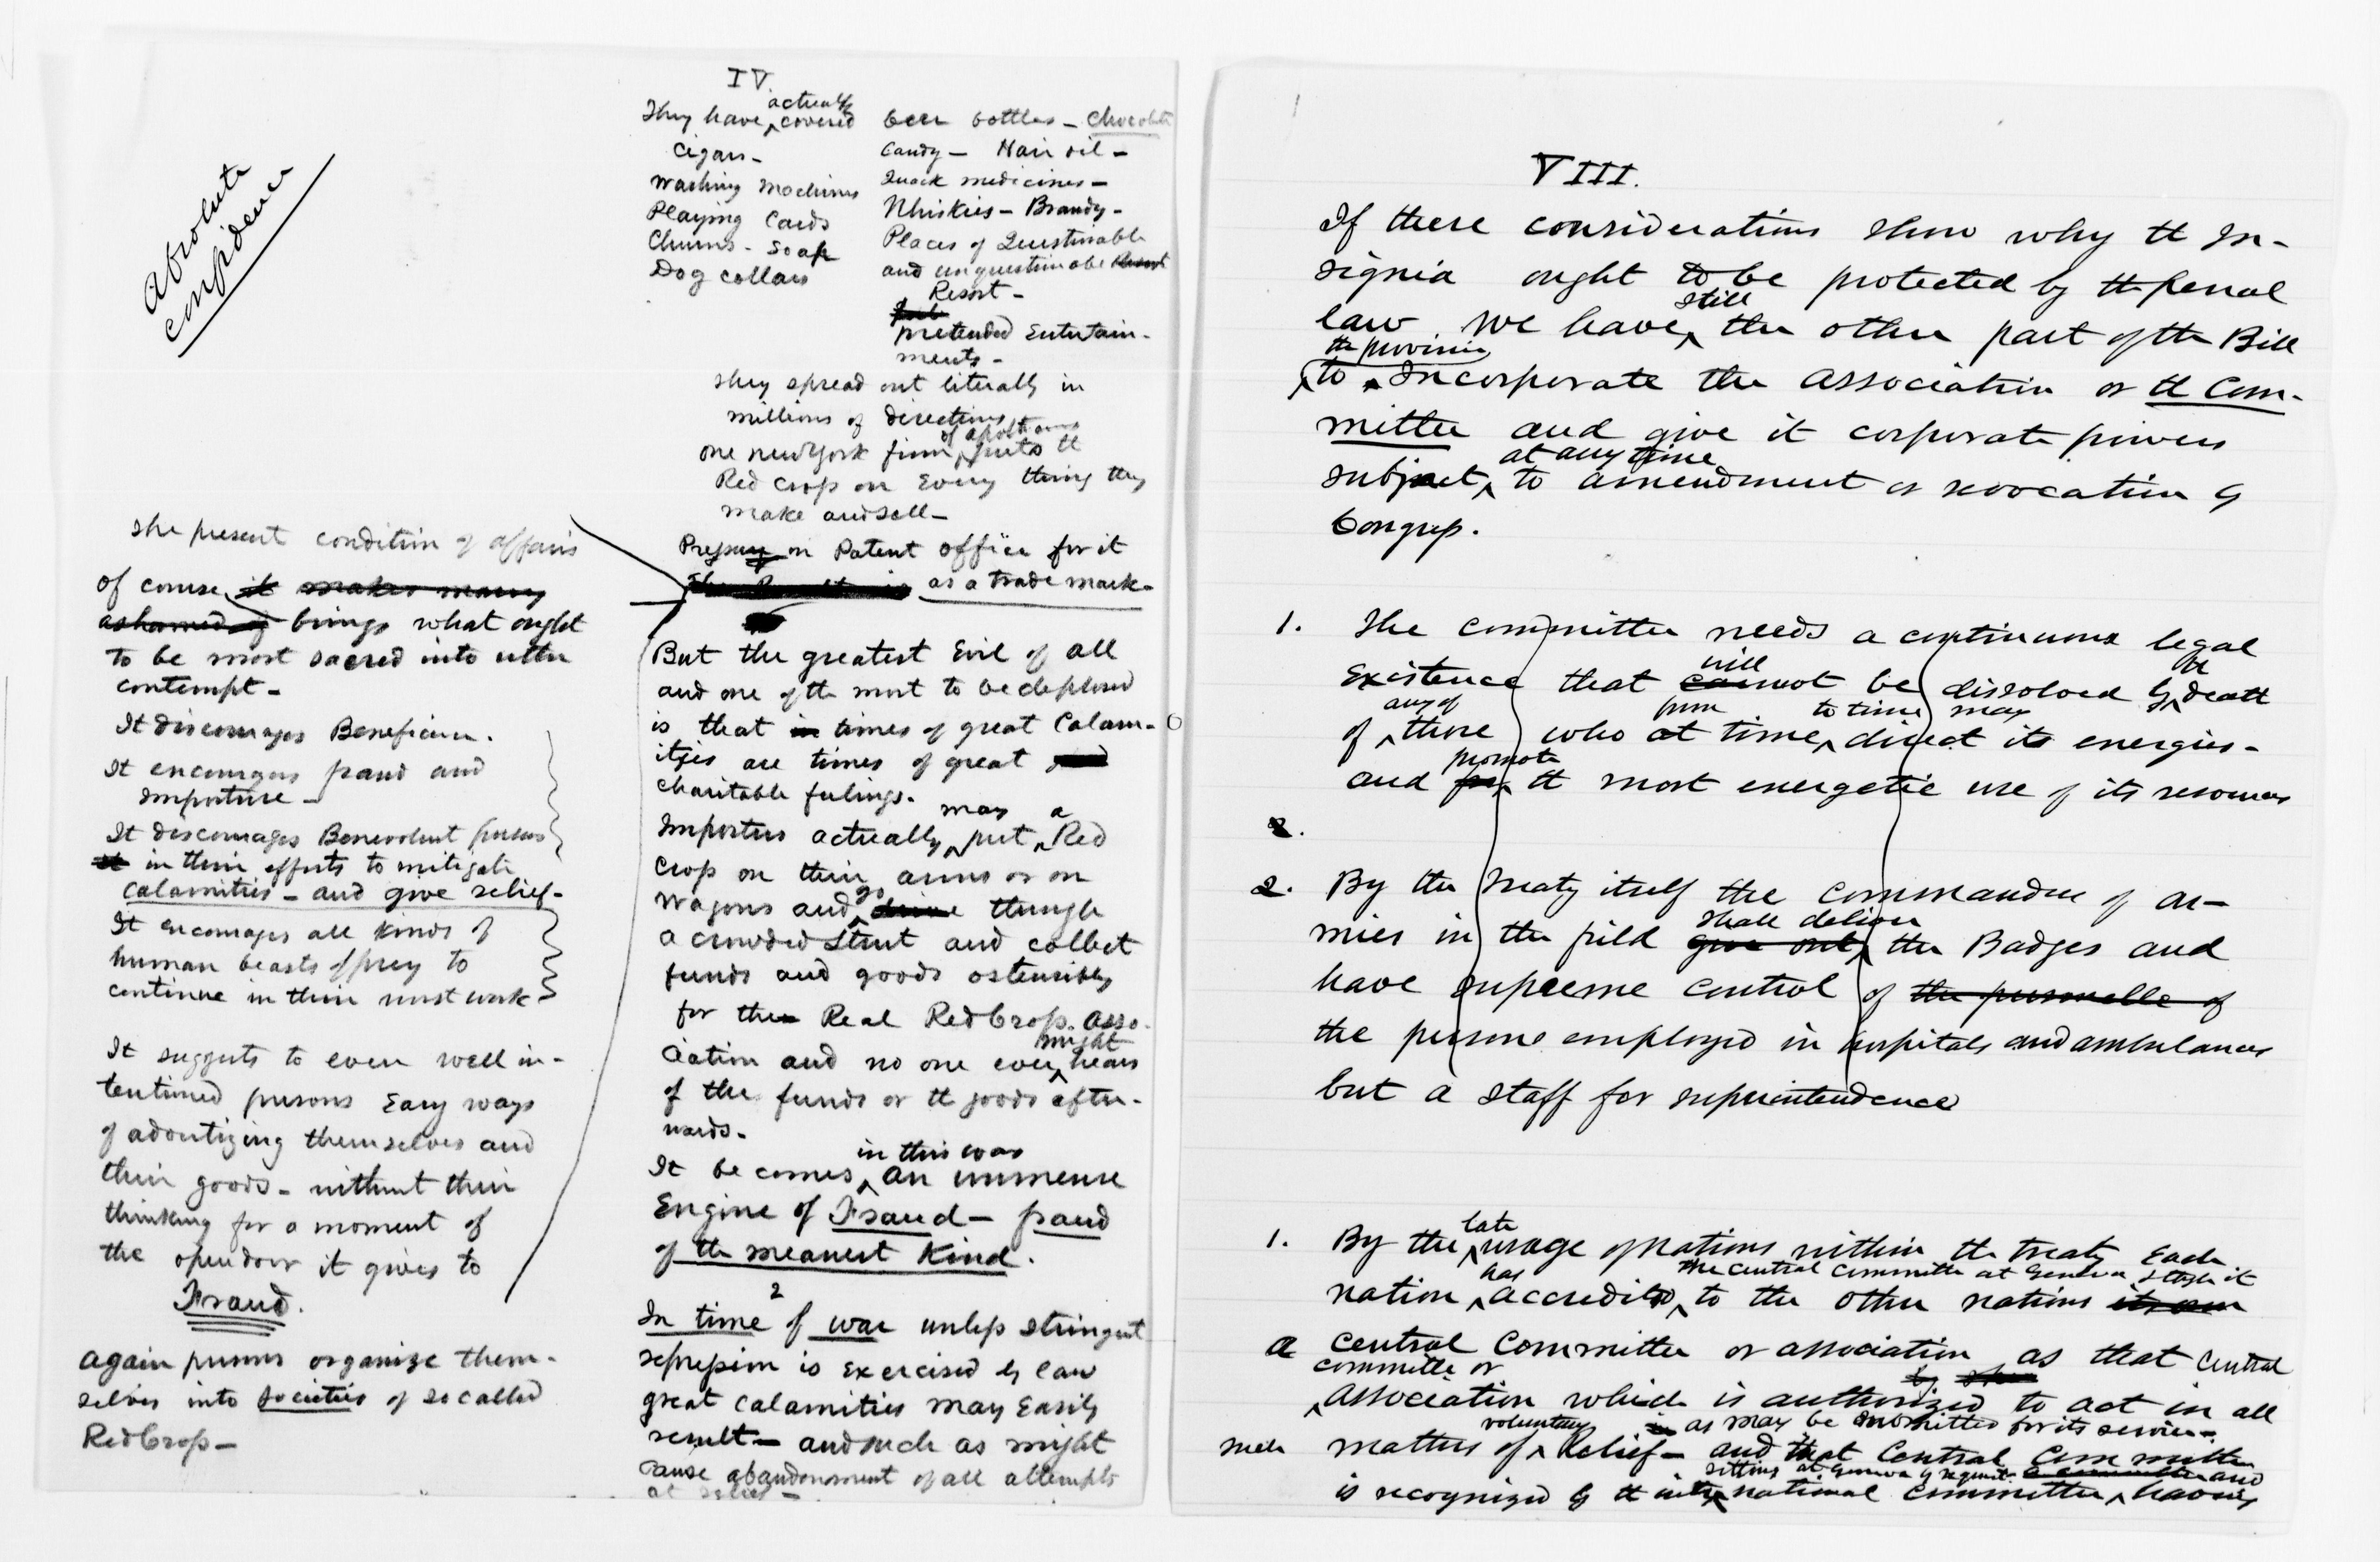 Absolute
confidence
The present condition of affairs
of course it makes many
ashamed of brings what ought
to be most sacred into utter
contempt -
It discourages Beneficence.
It encourages fraud and
imposture -
It discourages Benevolent persons
in their efforts to mitigate
calamities - and give relief -
It encourages all kinds of
human beasts of prey to
continue in their work
It suggests to even well in-
tentioned persons Easy ways
of advertizing themselves and
their goods - without their
thinking for a moment of
the open door it gives to
Fraud.
Again persons organize them-
selves into societies of so called
Red Cross -
IV.
actually
They have covered
cigars -
Washing Machines
Playing Cards
Churns - Soap
Dog collars
beer bottles - Chocolate
Candy - Hair oil -
Quack medicines -
Whiskies - Brandy -
Places of Questionable
and unquestionabe Resort
Resort -
pretended Entertain-
ments -
They spread out literally in
millions of directions
one New York firm puts tt
Red Cross on Every thing they
make and sell -
Pressure on Patent office for it
as a trade mark -
But the greatest Evil of all
and one of the most to be deplored
is that in times of great Calam-
ities are times of great
charitable feelings.
may a
Imposters actually put Red
Cross on their arms or on
go
wagons and drive through
a crowded Street and collect
funds and goods ostensibly
for the Real Red Cross Asso-
might
ciation and no one ever hears
of the funds or tt goods after-
wards -
in this way
It be comes an immense
Engine of Fraud - fraud
of the meanest Kind.
2
In time of war unless stringent
repression is exercised by law
great calamities may Easily
result - and such as might
cause abandonment of all attempts
at relief -
VIII.
If these considerations show why tt In-
signia ought to be protected by tt penal
still
law. We have the other part of the Bill
the provision
to Incorporate the Association or tt Com-
mittee and give it corporate powers
at any time
subject to amendment or revocation by
Congress.
1. The committee needs a continuous legal
will the
Existence that cannot be dissolved by death
any of from to time may
of those who at time direct its energies -
promote
and for tt most energetic use of its resources
2.
2. By the treaty itself the commanders of ar-
shall deliver
mies in the field give out the Badges and
have supreme control of the personelle of
the persons employed in hospitals and ambulances
but a staff for superintendence
late
1. By the usage of nations within the treaty Each
has the central committee at Geneva & through it
nation accredited to the other nations its own
a central Committee or association as that central
committee or by
Association which is authorized to act in all
voluntary as may be submitted for its service -
such matters of Relief - and that Central Committee
sitting at Geneva by request a committee and
is recognized by tt national committee having